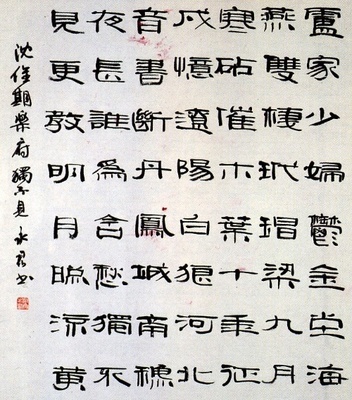 盧家少婦鬱金堂海
燕雙棲玳瑁梁九月
寒砧催木葉十年征
戍憶遼陽白狼河北
音書斷丹鳳城南穐
夜長誰為含愁獨不
見更教明月照流黃
沈佺期樂府獨不見 永